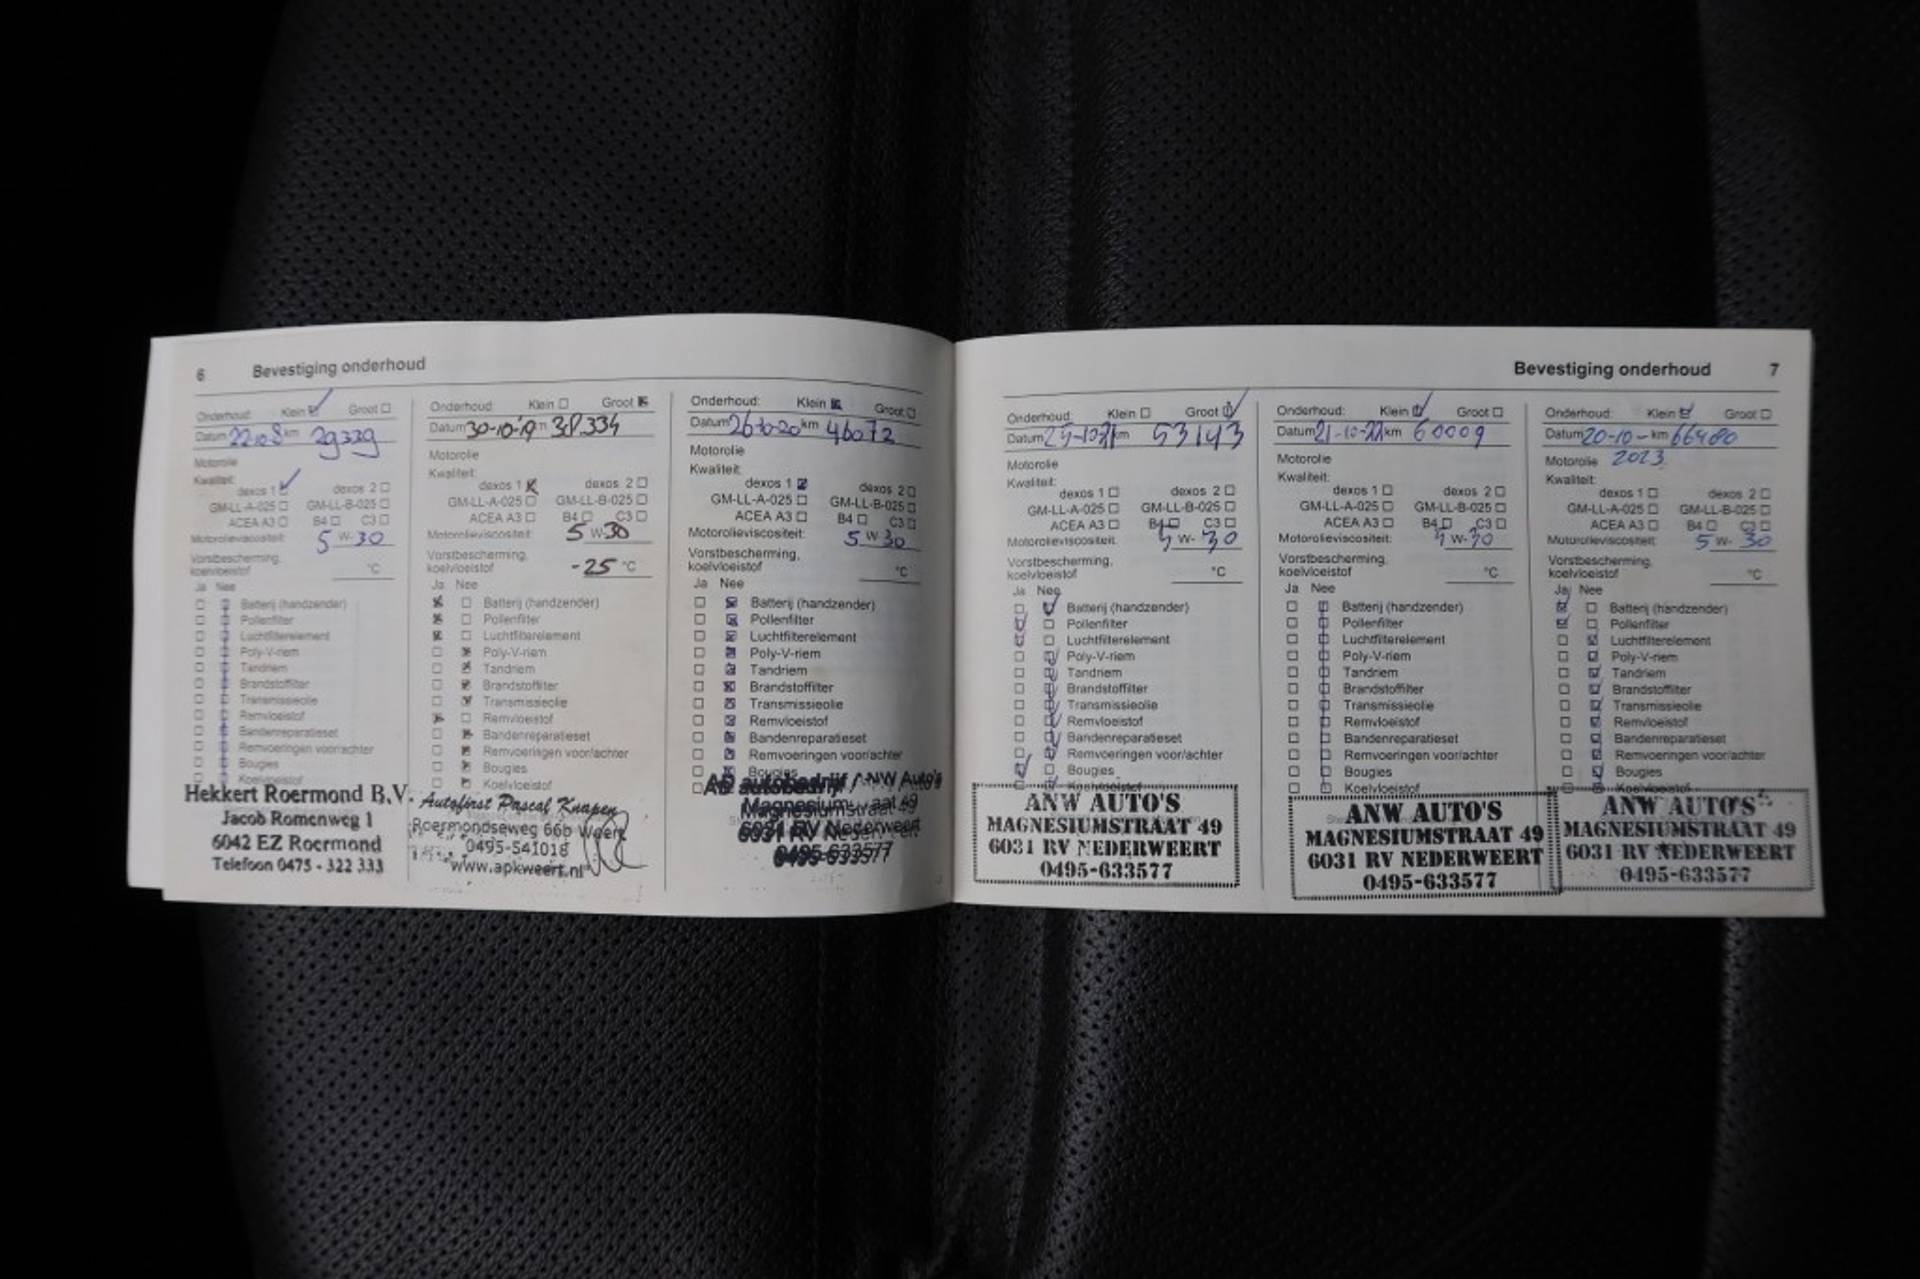 6 Bevestiging onderhoud
Onderhoud: Klein Groot
Datum km 29339
Motorolie
Kwaliteit:
dexos 1 dexos 2
GM-LL-A-025 GM-LL-B-025
ACEA A3 B4 C3
Motorolieviscositeit: 5 W-30
Vorstbescherming,
koelvloeistof °C
Ja Nee
Batterij (handzender)
Pollenfilter
Luchtfilterelement
Poly-V-riem
Tandriem
Brandstoffilter
Transmissieolie
Remvloeistof
Bandenreparatieset
Remvoeringen voor/achter
Bougies
Koelvloeistof
Hekkert Roermond B.V.
Jacob Romenweg 1
6042 EZ Roermond
Telefoon 0475 - 322 333
Onderhoud: Klein Groot
Datum 30-10-19
Motorolie
Kwaliteit:
dexos 1 dexos 2
GM-LL-A-025 GM-LL-B-025
ACEA A3 B4 C3
Motorolieviscositeit: 5 W-30
Vorstbescherming,
koelvloeistof -25 °C
Ja Nee
Batterij (handzender)
Pollenfilter
Luchtfilterelement
Poly-V-riem
Tandriem
Brandstoffilter
Transmissieolie
Remvloeistof
Bandenreparatieset
Remvoeringen voor/achter
Bougies
Koelvloeistof
Autofirst Pascal Knapen
Roermondseweg 66b Weert
0495-541018
www.apkweert.nl
Onderhoud: Klein Groot
Datum 26-10-20 km 46072
Motorolie
Kwaliteit:
dexos 1 dexos 2
GM-LL-A-025 GM-LL-B-025
ACEA A3 B4 C3
Motorolieviscositeit: 5 W-30
Vorstbescherming,
koelvloeistof °C
Ja Nee
Batterij (handzender)
Pollenfilter
Luchtfilterelement
Poly-V-riem
Tandriem
Brandstoffilter
Transmissieolie
Remvloeistof
Bandenreparatieset
Remvoeringen voor/achter
Bougies
AD autobedrijf / ANW Auto's
Magnesiumstraat 49
6031 RV Nederweert
0495-633577
Bevestiging onderhoud 7
Onderhoud: Klein Groot
Datum km 53143
Motorolie
Kwaliteit:
dexos 1 dexos 2
GM-LL-A-025 GM-LL-B-025
ACEA A3 B4 C3
Motorolieviscositeit: 5 W-30
Vorstbescherming,
koelvloeistof °C
Ja Nee
Batterij (handzender)
Pollenfilter
Luchtfilterelement
Poly-V-riem
Tandriem
Brandstoffilter
Transmissieolie
Remvloeistof
Bandenreparatieset
Remvoeringen voor/achter
Bougies
Koelvloeistof
ANW AUTO'S
MAGNESIUMSTRAAT 49
6031 RV NEDERWEERT
0495-633577
Onderhoud: Klein Groot
Datum 21-10-22 km 60009
Motorolie
Kwaliteit:
dexos 1 dexos 2
GM-LL-A-025 GM-LL-B-025
ACEA A3 B4 C3
Motorolieviscositeit: 5 W-30
Vorstbescherming,
koelvloeistof °C
Ja Nee
Batterij (handzender)
Pollenfilter
Luchtfilterelement
Poly-V-riem
Tandriem
Brandstoffilter
Transmissieolie
Remvloeistof
Bandenreparatieset
Remvoeringen voor/achter
Bougies
Koelvloeistof
ANW AUTO'S
MAGNESIUMSTRAAT 49
6031 RV NEDERWEERT
0495-633577
Onderhoud: Klein Groot
Datum 20-10- km 66480
Motorolie 2023
Kwaliteit:
dexos 1 dexos 2
GM-LL-A-025 GM-LL-B-025
ACEA A3 B4 C3
Motorolieviscositeit: 5 W-30
Vorstbescherming,
koelvloeistof °C
Ja Nee
Batterij (handzender)
Pollenfilter
Luchtfilterelement
Poly-V-riem
Tandriem
Brandstoffilter
Transmissieolie
Remvloeistof
Bandenreparatieset
Remvoeringen voor/achter
Bougies
Koelvloeistof
ANW AUTO'S
MAGNESIUMSTRAAT 49
6031 RV NEDERWEERT
0495-633577